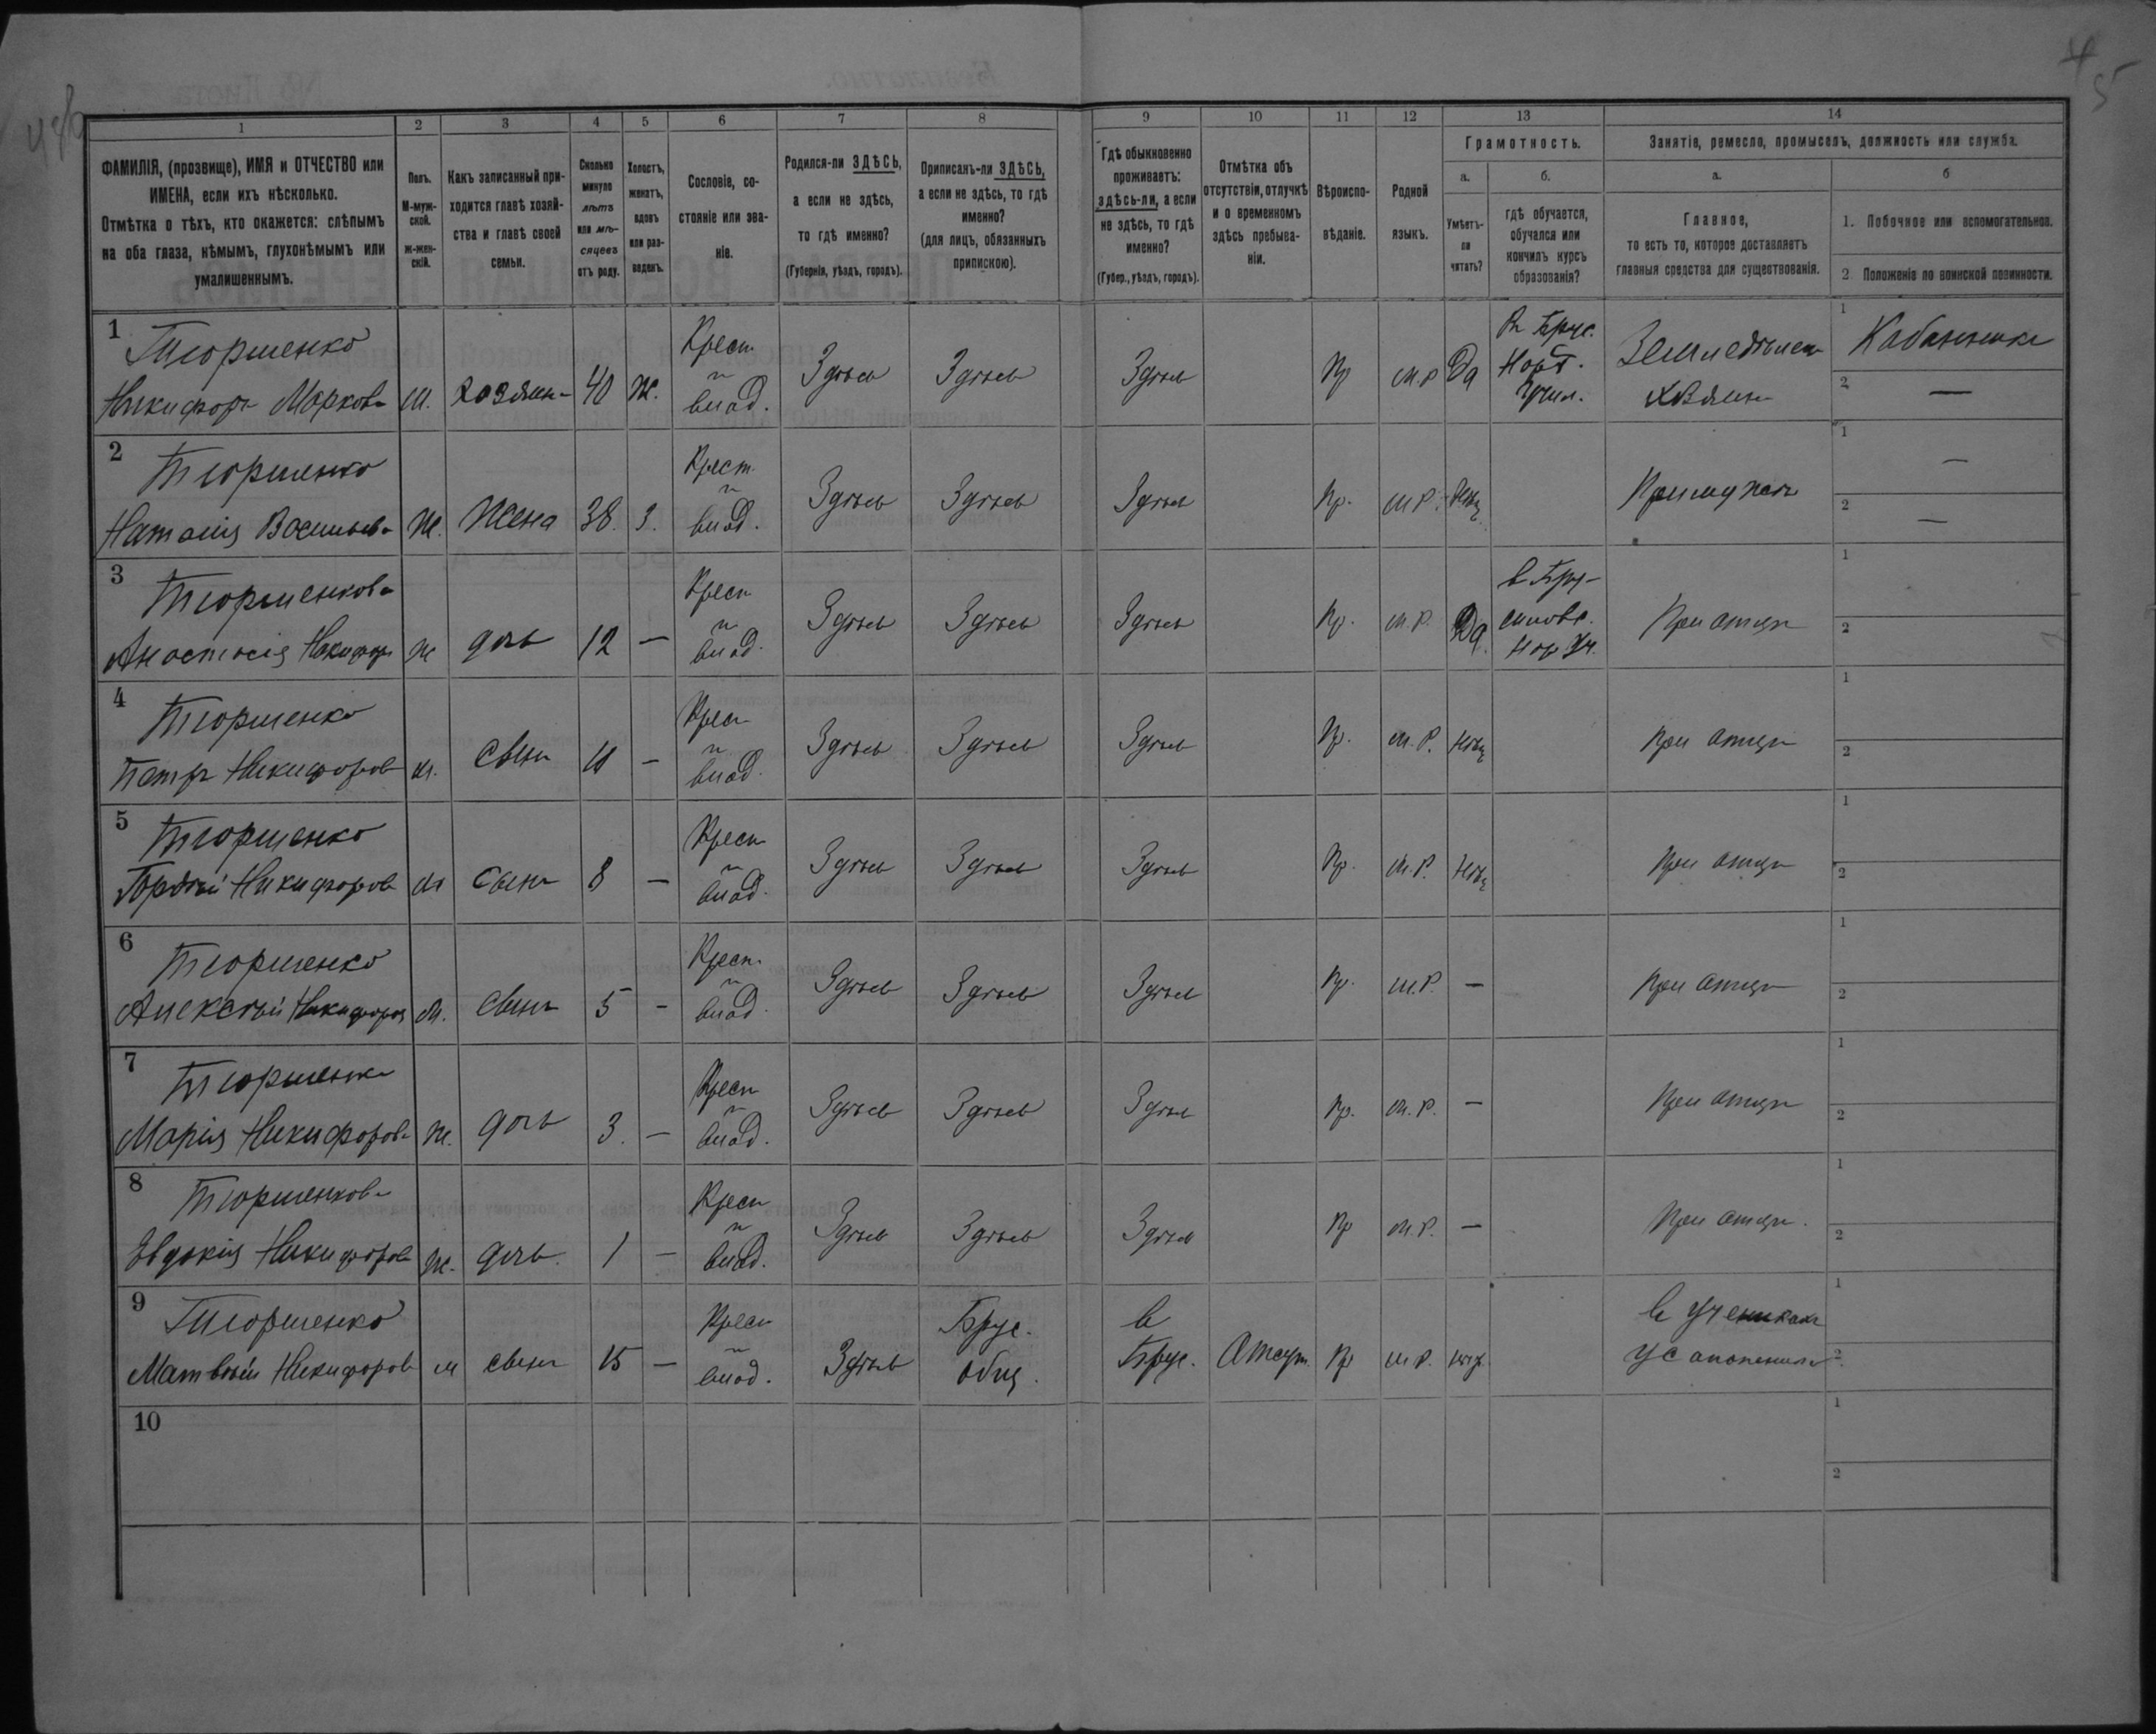 1
2
3
4
5
6
7
8
9
10
11
12
13
14
ФАМИЛІЯ, (прозвище), ИМЯ и ОТЧЕСТВО или
ИМЕНА, если ихъ нѣсколько.
Отмѣтка о тѣхъ, кто окажется: слѣпымъ
на оба глаза, нѣмымъ, глухонѣмымъ или
умалишеннымъ.
Полъ.
М-муж-
ской.
ж-жен-
скій.
Какъ записанный при-
ходится главѣ хозяй-
ства и главѣ своей
семьи.
Сколько
минуло
лѣтъ
или мѣ-
сяцевъ
отъ роду.
Холостъ,
женатъ,
вдовъ
или раз-
веденъ.
Сословіе, со-
стояніе или зва-
ніе.
Родился-ли ЗДѢСЬ,
а если не здѣсь,
то гдѣ именно?
(Губернія, уѣздъ, городъ).
Приписанъ-ли ЗДѢСЬ,
а если не здѣсь, то гдѣ
именно?
(для лицъ, обязанныхъ
припискою).
Гдѣ обыкновенно
проживаетъ:
здѣсь-ли, а если
не здѣсь, то гдѣ
именно?
(Губер., уѣздъ, городъ).
Отмѣтка объ
отсутствіи, отлучкѣ
и о временномъ
здѣсь пребыва-
ніи.
Вѣроиспо-
вѣданіе.
Родной
языкъ.
Грамотность.
а.
Умѣетъ-
ли
читать?
б.
гдѣ обучается,
обучался или
кончилъ курсъ
образованія?
Занятіе, ремесло, промыселъ, должность или служба.
а.
Главное,
то есть то, которое доставляетъ
главныя средства для существованія.
б
1. Побочное или вспомогательное.
2 Положеніе по воинской повинности.
1
Тюрменко
Никифоръ Марковъ
М.
хозяинъ
40
Ж.
Крест.
и
влад.
Здѣсь
Здѣсь
Здѣсь
Пр
м.р
Да
Брус.
Нор.
Учил.
Земледѣлецъ
хозяинъ
1
2
—
2
Тюрменко
Наталія Васильева
Ж.
Жена
38.
З.
Крест.
и
влад.
Здѣсь
Здѣсь
Здѣсь
Пр.
м.р.
При мужѣ
1
—
2
—
3
Тюрменкова
Анастасія Никифор
Ж
дочь
12
—
Крест
и
влад.
Здѣсь
Здѣсь
Здѣсь
Пр.
м.р.
Да.
в Бру-
силов.
Нор Уч.
При отцѣ
1
2
4
Тюрменко
Петръ Никифоровъ
М.
сынъ
—
Крест
и
влад.
Здѣсь
Здѣсь
Здѣсь
Пр.
м.р.
Нѣтъ
При отцѣ
1
2
5
Тюрменко
Гордѣй Никифоровъ
М
сынъ
8
—
Крест
и
влад.
Здѣсь
Здѣсь
Здѣсь
Пр.
м.р.
Нѣтъ
При отцѣ
1
2
6
Тюрменко
Алексѣй Никифоров
М.
сынъ
5
—
Крест.
и
влад.
Здѣсь
Здѣсь
Здѣсь
Пр.
м.р.
—
При отцѣ
1
2
7
Тюрменко
Марія Никифорова
Ж.
дочь
3.
—
Крест
и
влад.
Здѣсь
Здѣсь
Здѣсь
Пр.
м.р.
—
При отцѣ
1
2
8
Тюрменкова
Евдокія Никифорова
Ж.
дочь.
1
—
Крест
и
влад.
Здѣсь
Здѣсь
Здѣсь
Пр
м.р.
—
При отцѣ.
1
2
9
Тюрменко
Матвѣй Никифоровъ
М
сынъ
15
—
Крест
и
влад.
Здѣсь
Брус.
общ.
в
Брус.
Отсут.
Пр
м.р.
в ученикахъ
у сапожника
1
2
10
1
2